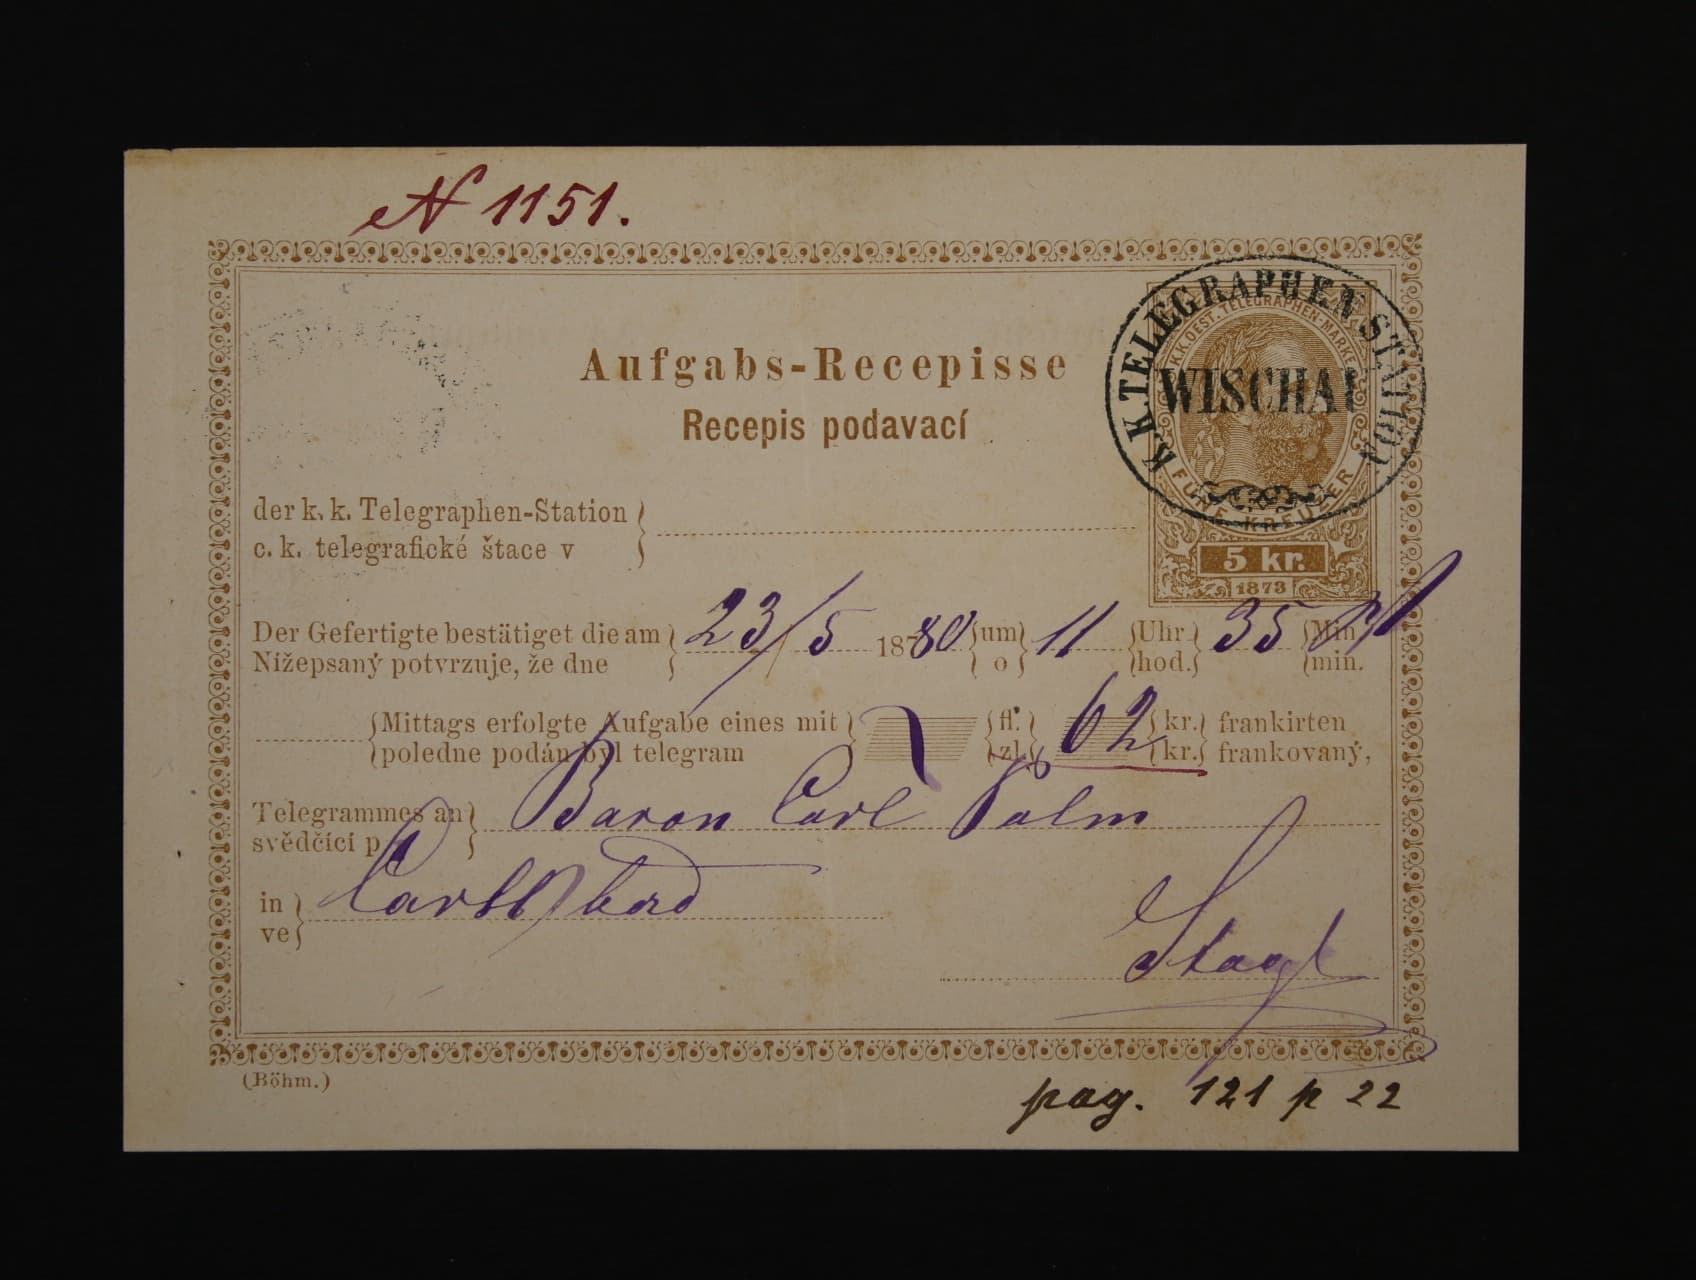 N 1151.
K.K. TELEGRAPHEN STATION
WISCHAU
K.K. OEST. TELEGRAPHEN-MARKE
FÜNF KREUZER
5 kr.
1873
Aufgabs-Recepisse
Recepis podavací
der k. k. Telegraphen-Station
c. k. telegrafické štace v
Der Gefertigte bestätiget die am 23/5 1880 um 11 Uhr 35 Min
Nížepsaný potvrzuje, že dne o hod. min.
Mittags erfolgte Aufgabe eines mit fl. 62 kr. frankirten
poledne podán byl telegram zl. kr. frankovaný,
Telegrammes an Baron Carl Palm
svědčící p.
in Carlsbad
ve
(Böhm.)
pag. 121 p 22